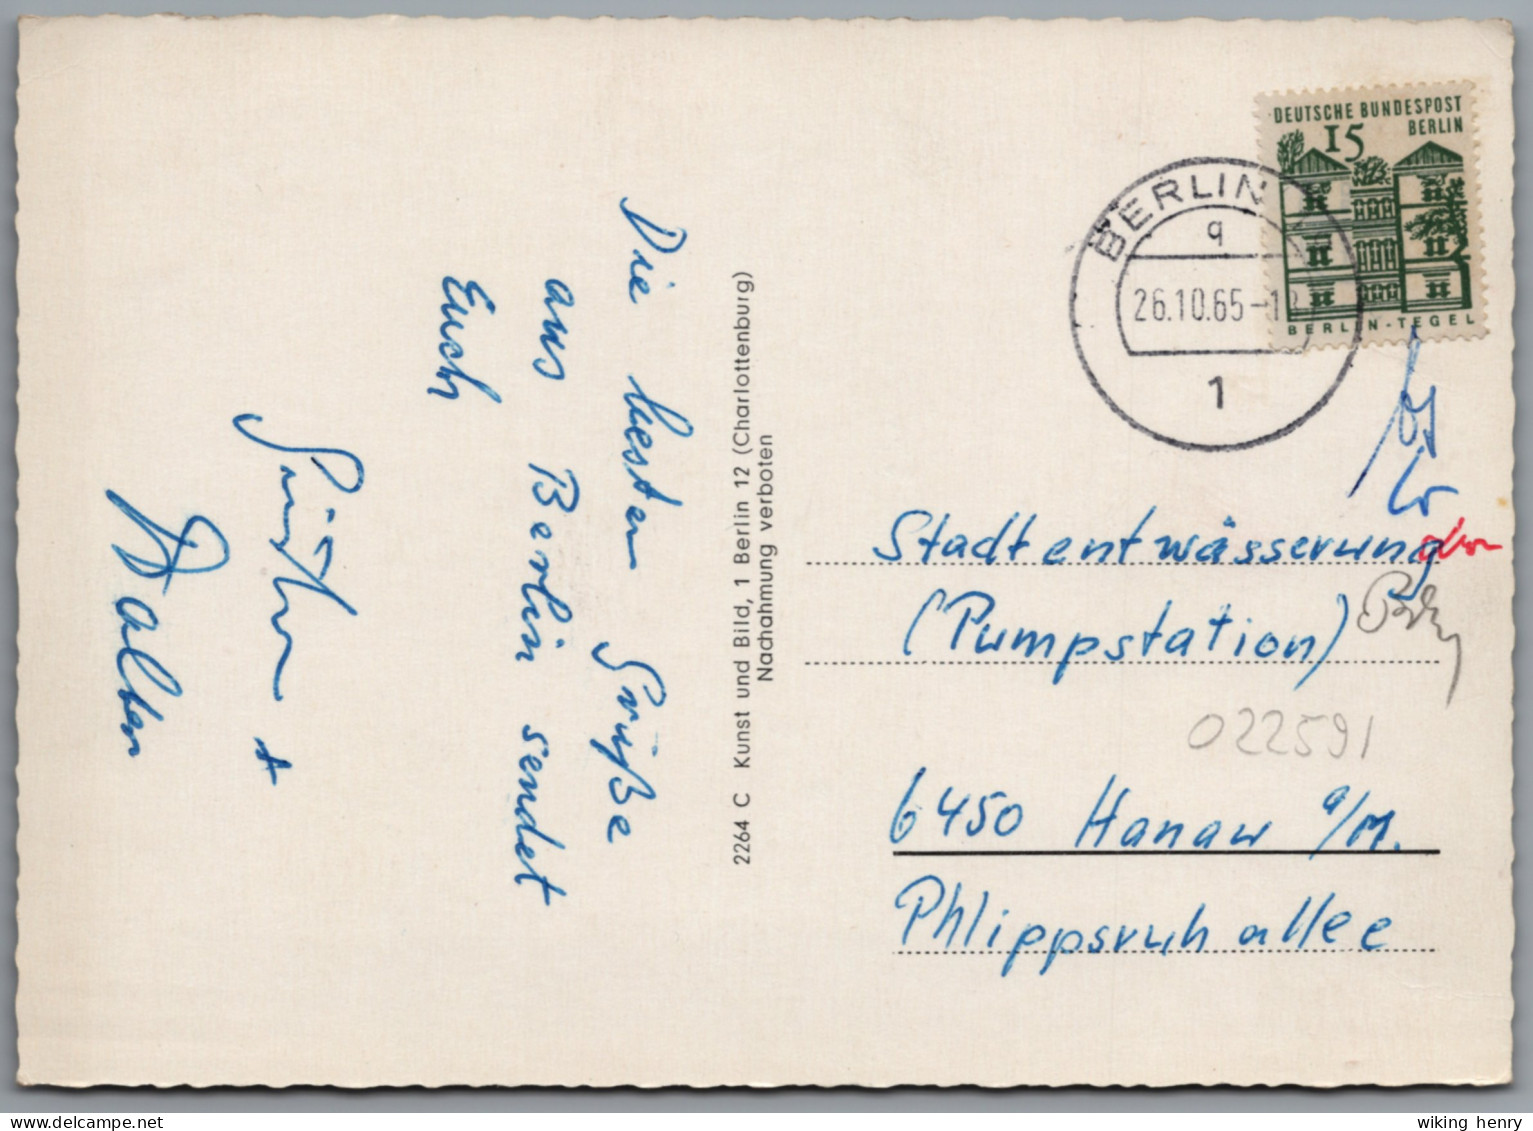 Die besten Grüße
aus Berlin sendet
Euch
Günther +
2264 C Kunst und Bild, 1 Berlin 12 (Charlottenburg)
Nachahmung verboten
DEUTSCHE BUNDESPOST
BERLIN
15
BERLIN-TEGEL
BERLIN
q
26.10.65-
1
Stadtentwässerung
(Pumpstation)
022591
6450 Hanau a/M.
Phlippsruhallee
wiking henry